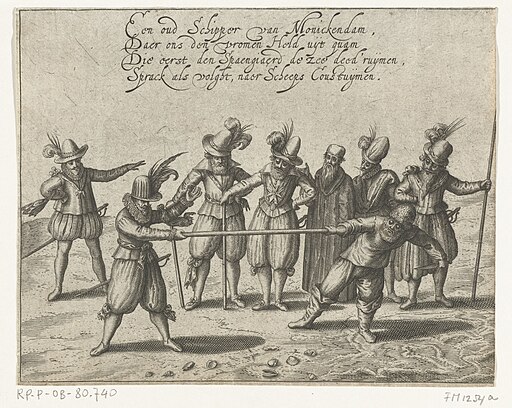 Een oud Schipper van Monickendam,
Daer ons den vromen Held uyt quam
Die eerst den Spaengiaerd de zee deed ruymen,
Sprack als volght, naer Scheeps Coustuymen.
RP.P-OB-80.740